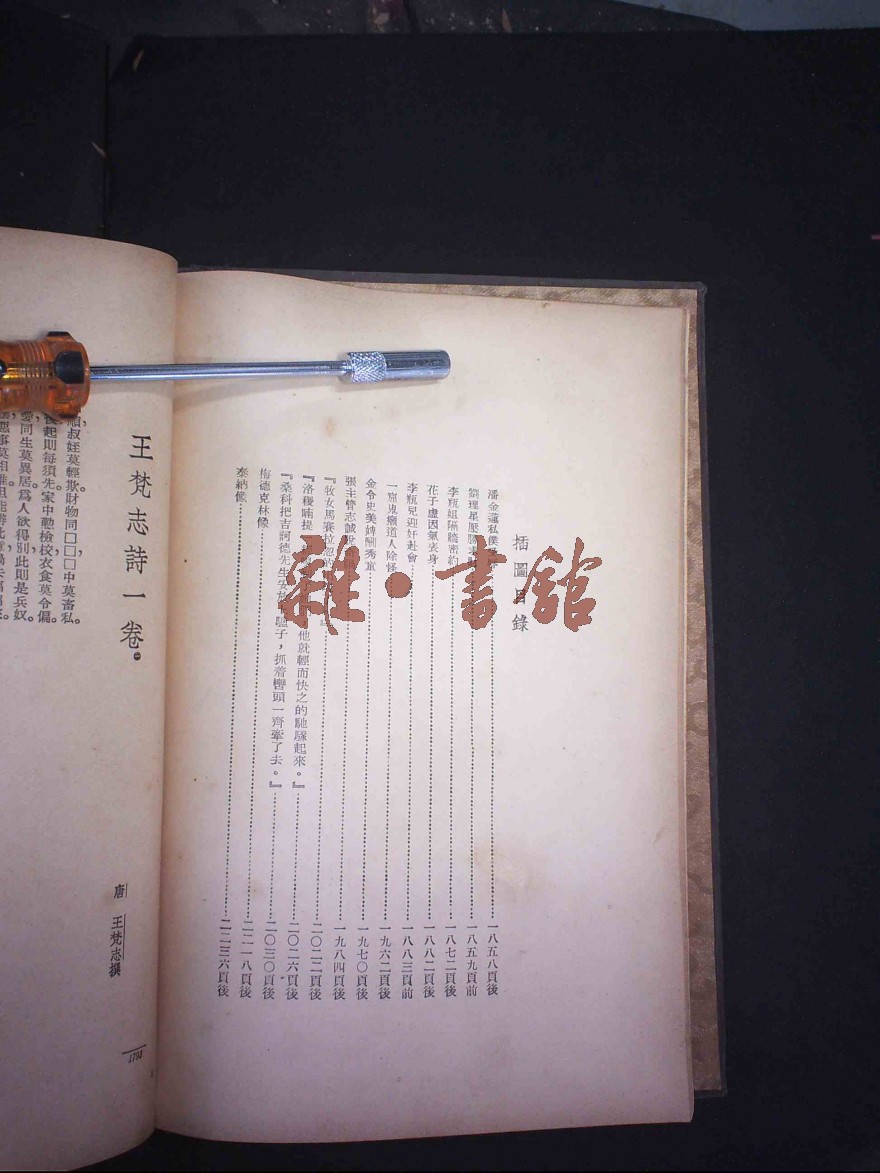 插圖目錄
潘金蓮私僕 一八五八頁後
劉理星魘勝 一八五九頁前
李瓶姐隔牆密約 一八七二頁後
花子虛因氣喪身 一八八二頁後
李瓶兒迎奸赴會 一八八三頁前
一窟鬼癩道人除怪 一九六二頁後
金令史美婢酬秀童 一九七〇頁後
張主管志誠 一九八四頁後
『牧女馬賽拉 二〇二二頁後
『洛稷喃提 他就輕而快之的馳騁起來。』 二〇二六頁後
『桑科把吉訶德先生安 驢子，抓着轡頭一齊牽了去。』 二〇三〇頁後
梅德克林候 二二一八頁後
泰納候 二二三六頁後
雜·書館
王梵志詩一卷
唐 王梵志撰
順叔姪莫輕欺財物同□□□中莫畜私。
後起則每須先家中勤檢校衣食莫令偏。
同生莫異居爲人欲得別此則是兵奴。
1794